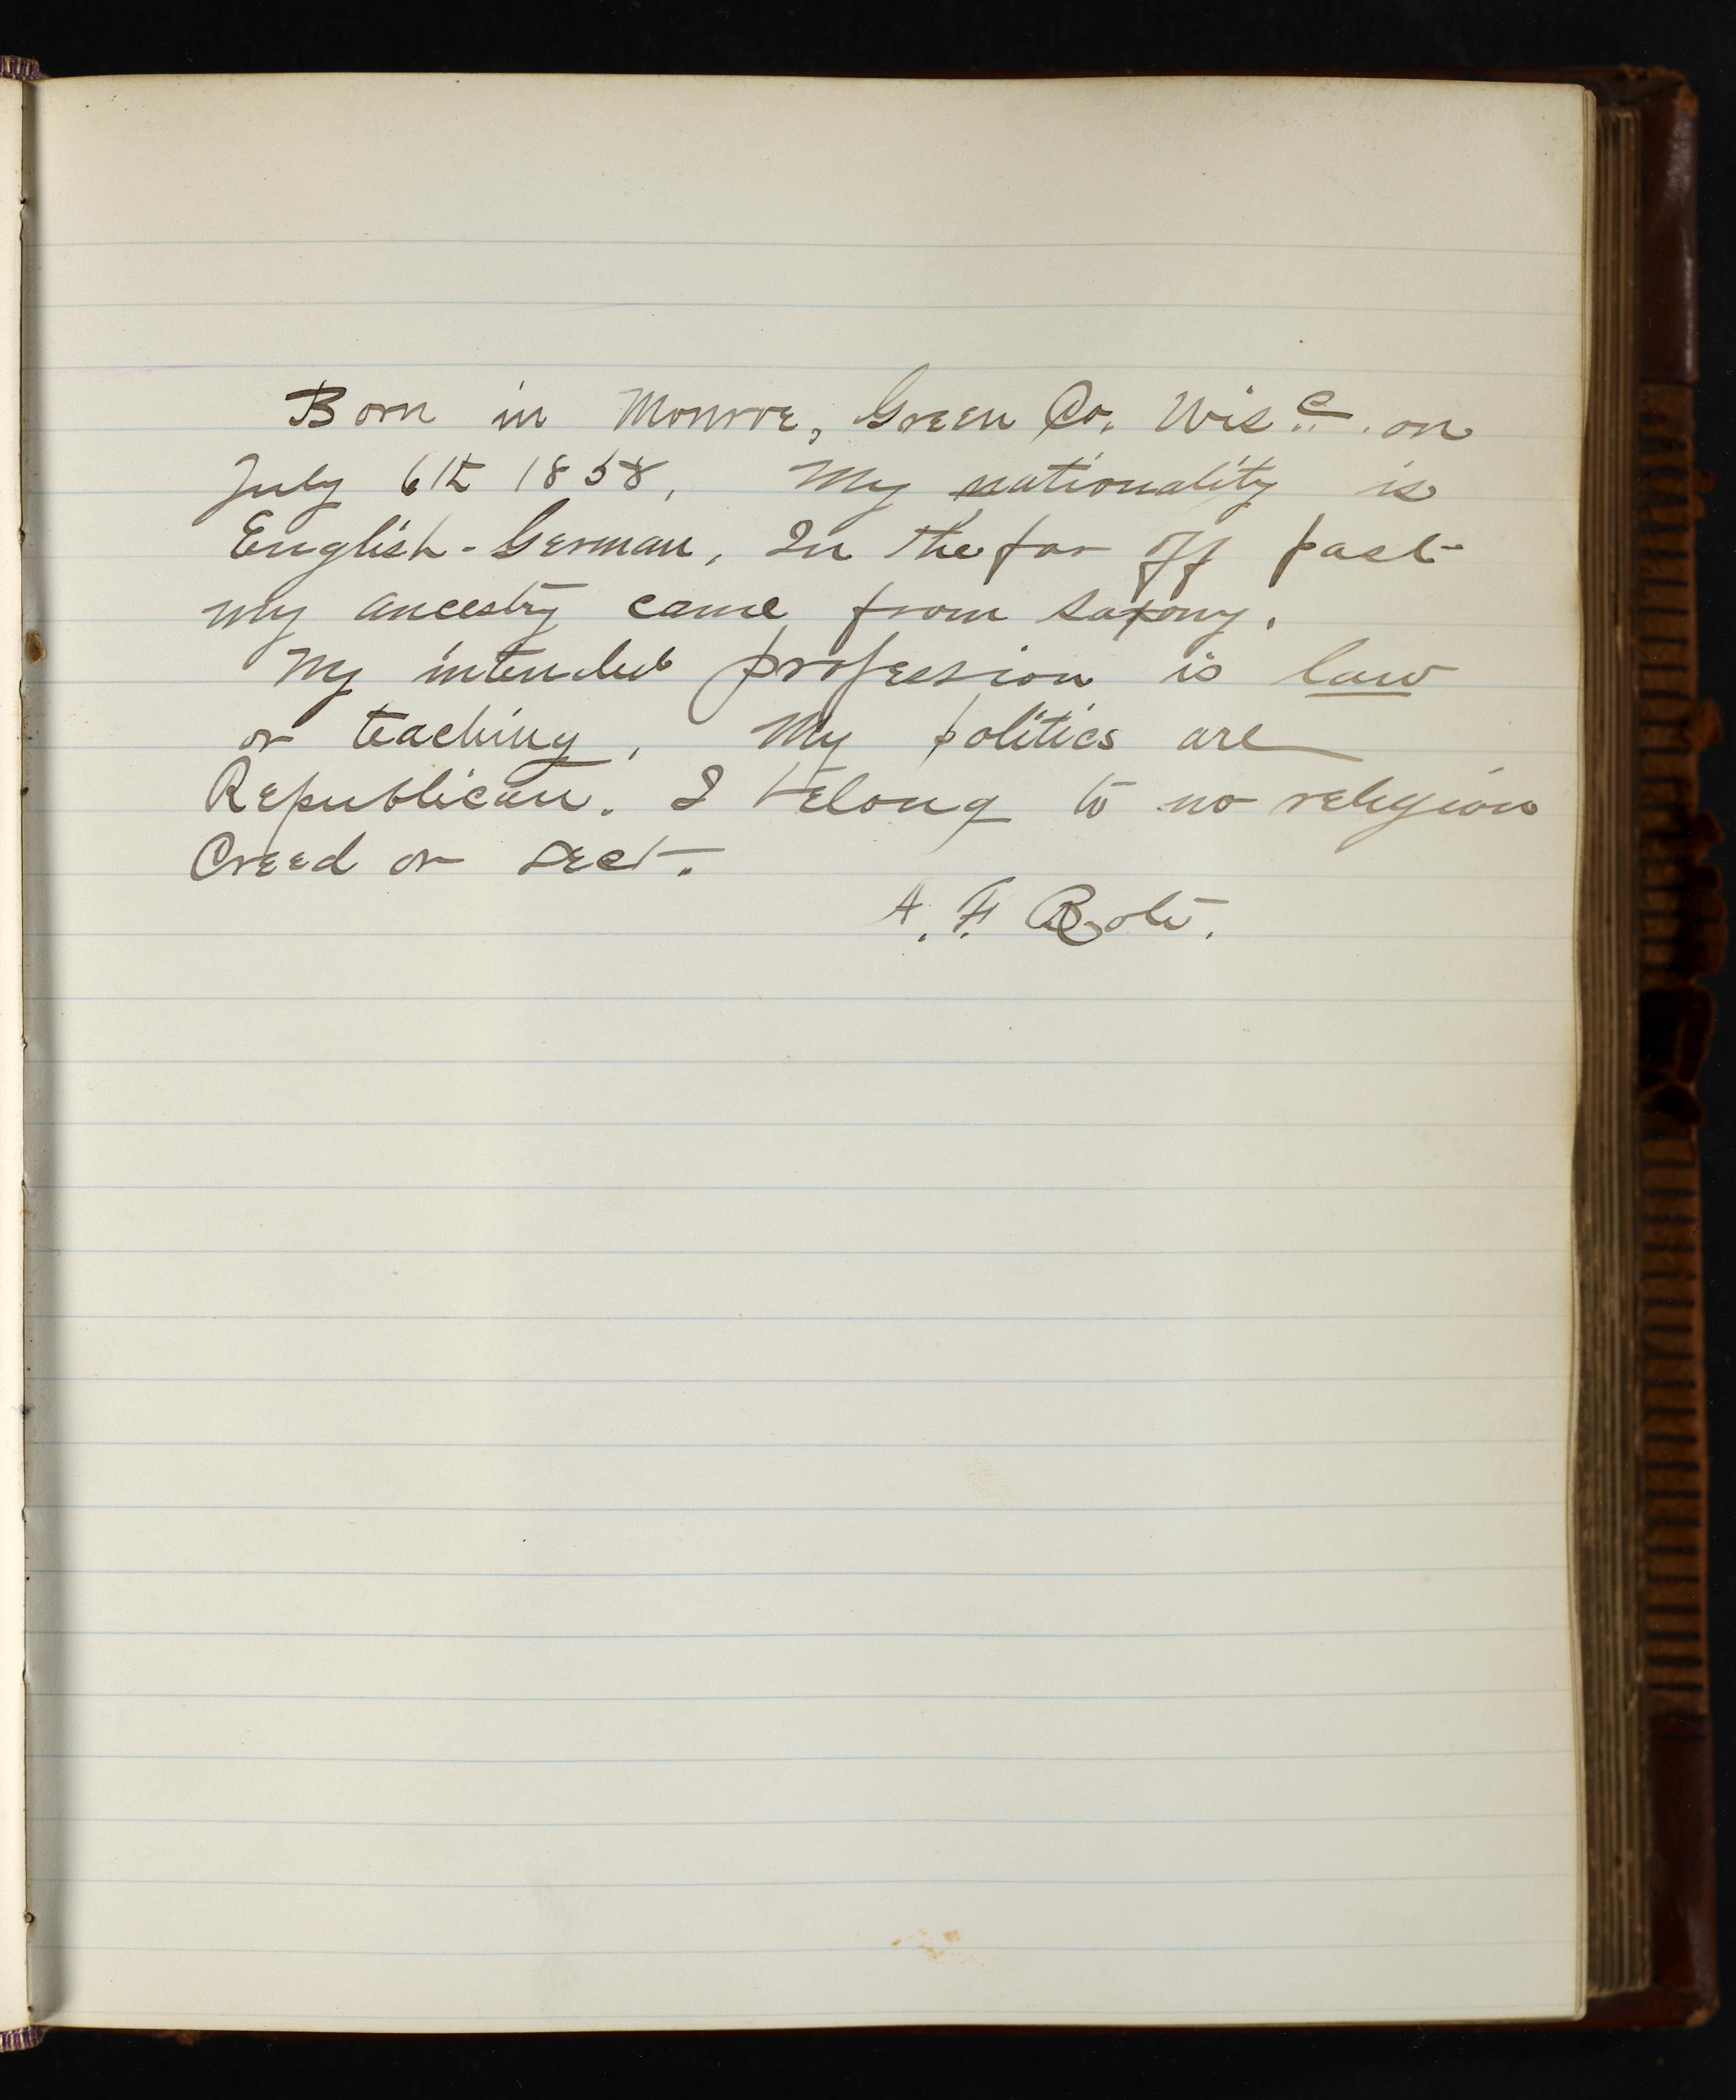 Born in Monroe, Green Co. Wisc. on
July 6th 1858. My nationality is
English-German. In the far off past
my ancestry came from Saxony.
My intended profession is law
or teaching. My politics are
Republican. I belong to no religion
Creed or sect.
A. F.